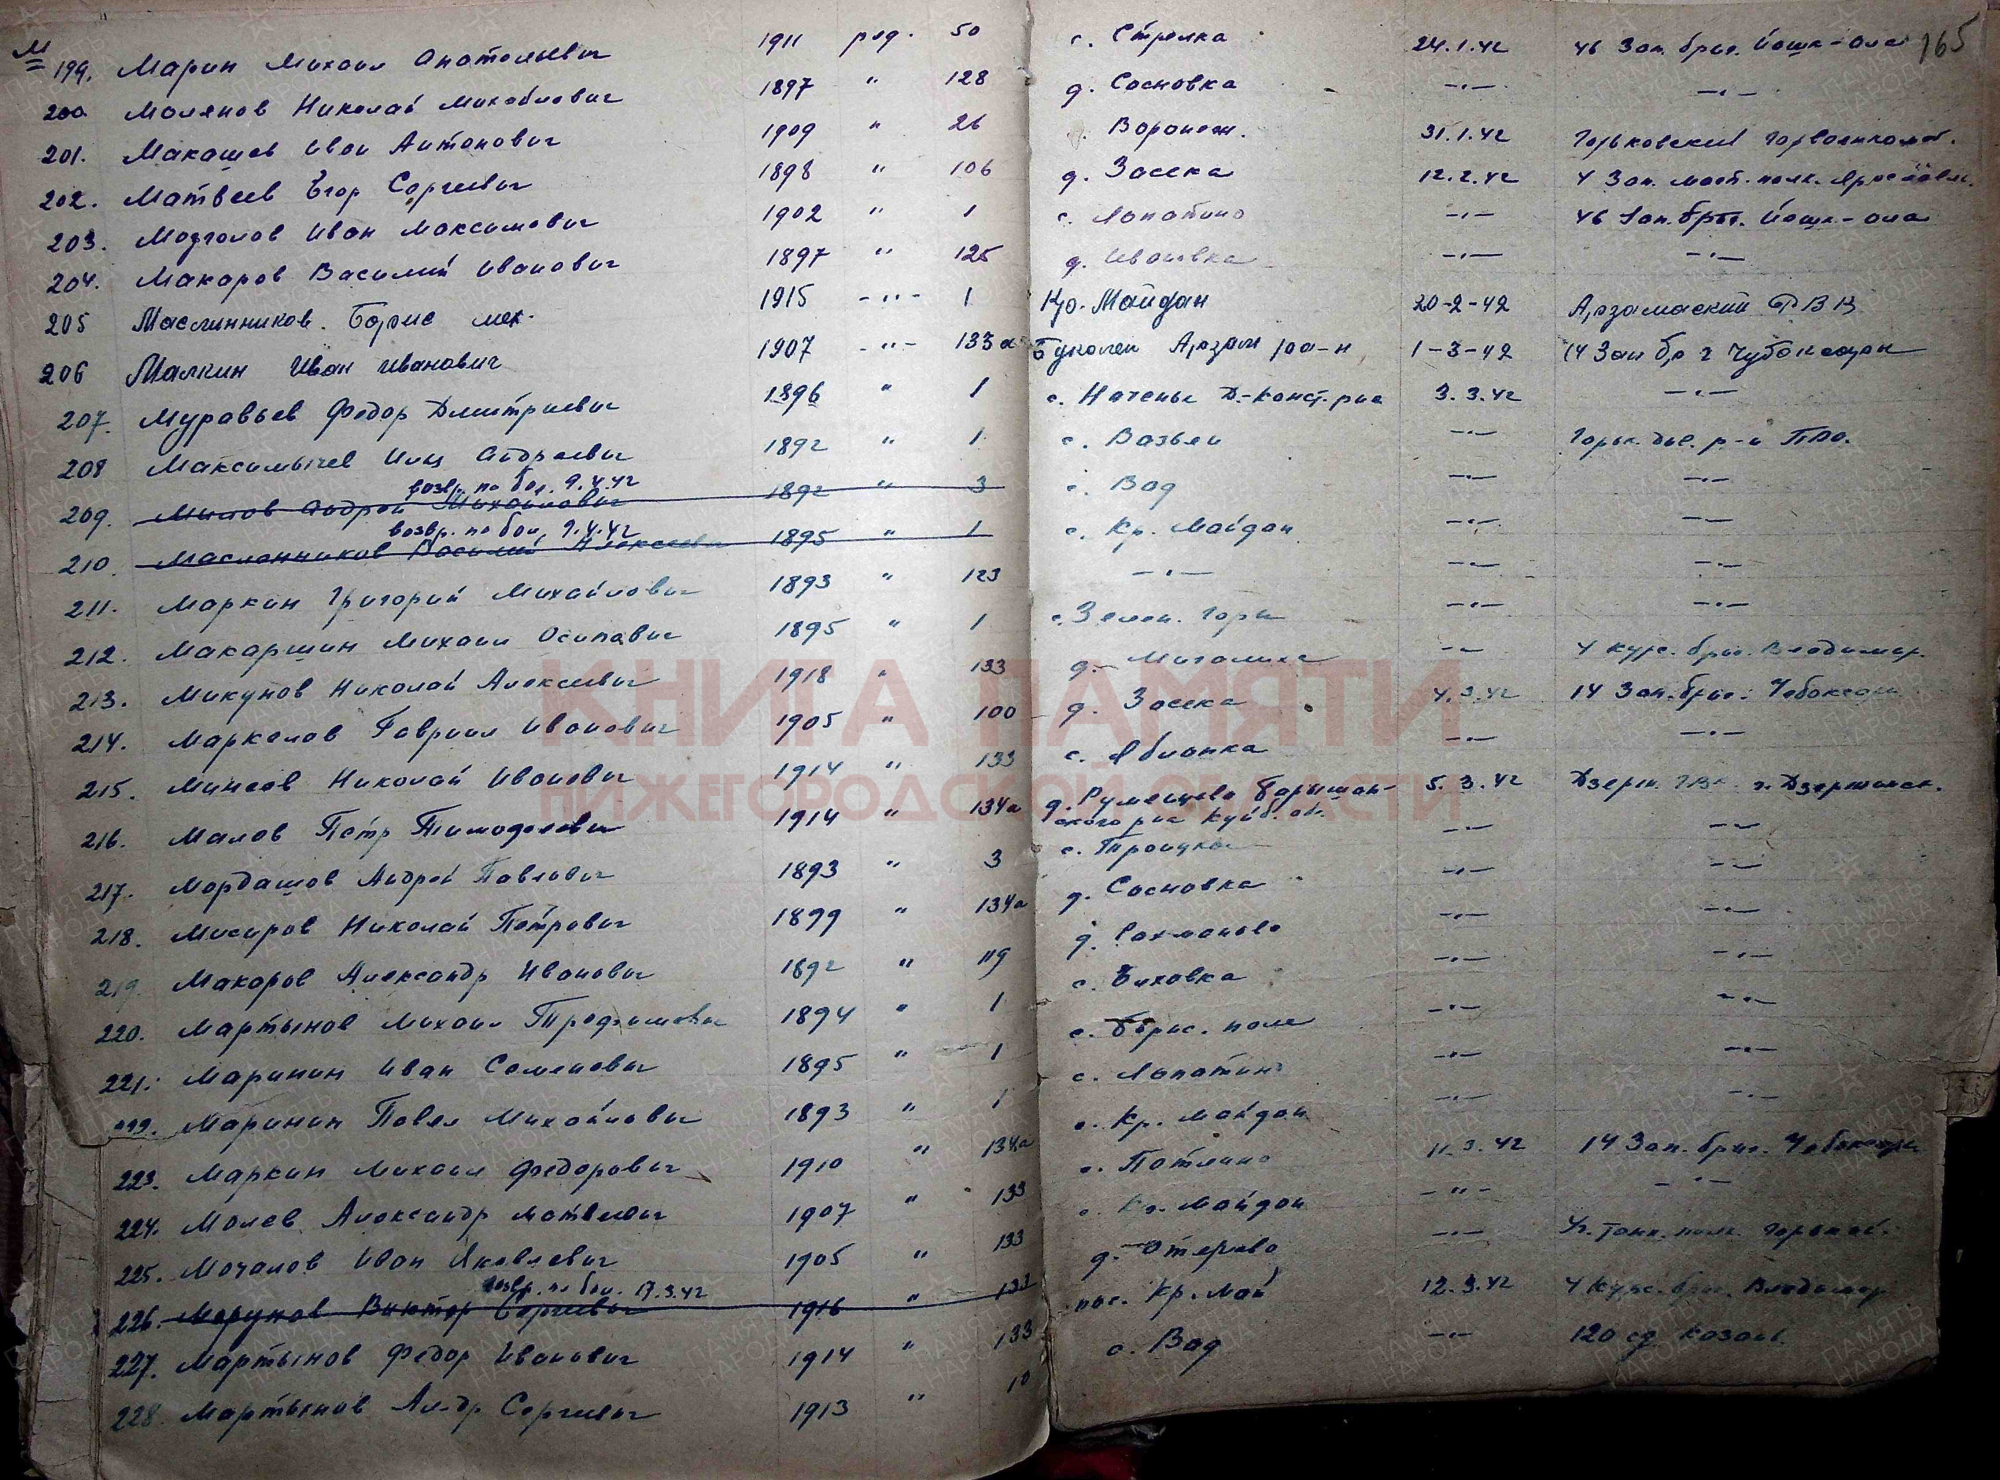 М 165
199. Марин Михаил Анатольевич 1911 ряд. 50 с. Стрелка 24.1.42 46 Зап. бриг. Йошк-Ола
200 Молянов Николай Михайлович 1897 " 128 д. Сосновка —"— —"—
201. Макашев Иван Антонович 1909 " 26 Воронеж. 31.1.42 Горьковский Горвоенкомат.
202. Матвеев Егор Сергеевич 1898 " 106 д. Засека 12.2.42 4 Зап. мост. полк.
203. Модголов Иван Максимович 1902 " 1 с. Лопатино —"— 46 Зап. бриг. Йошк-Ола
204. Макаров Василий Иванович 1897 " 125 д. Ивашвка —"— —"—
205 Маслинников. Борис 1915 —"— 1 Кр. Майдан 20-2-42 Арзамаский РВК
206 Малкин Иван Иванович 1907 —"— 133а Арзам ра-н 1-3-42 14 Зап бр г Чубоксары
207. Муравьев Федор Дмитриевич 1896 " 1 с. Д.-Конст. р-на 3.3.42 —"—
208 Максимычев Илц Андреевич 1892 " 1 с. Вазьян —"—
209. Милов Андрей Михайлович возвр. по бол. 9.4.42 1892 " 3 с. Вад —"— —"—
210. Масленников Василий Алексеевич возвр. по бол. 9.4.42 1895 " 1 с. Кр. Майдан —"— —"—
211. Маркин Григорий Михайлович 1893 " 123 —"— —"— —"—
212. Макаршин Михаил Осипович 1895 " 1 с. Зелен. Горы —"— —"—
213. Микунов Николай Алексеевич 1918 " 133 д. Мигалиха —"— 4 курс. бриг. Владимир.
214. Маркелов Гавриил Иванович 1905 " 100 д. Засека 4.3.42 14 Зап. бриг. Чебоксары
215. Минеев Николай Иванович 1914 " 133 с. Яблонка —"— —"—
216. Малов Петр Тимофеевич 1914 " 134а д. Румянцево Барышан- 5.3.42 Дзерж. ГВК г. Дзержинск.
ского р-на Куйб. об.
217. Мордашов Андрей Павлович 1893 " 3 с. Троицкое —"— —"—
218. Мисиров Николай Петрович 1899 " 134а д. Сосновка —"— —"—
219. Макаров Александр Иванович 1892 " 119 д. Рахманово —"— —"—
220. Мартынов Михаил Трофимович 1894 " 1 с. Елховка —"— —"—
221. Маринин Иван Семенович 1895 " 1 с. Борис. поле —"— —"—
222. Маринин Павел Михайлович 1893 " 1 с. Лопатино —"— —"—
223. Маркин Михаил Федорович 1910 " 134а с. Кр. Майдан —"— —"—
224. Молев Александр Матвеевич 1907 " 133 с. Потлино 11.3.42 14 Зап. бриг. Чебоксары
225. Мочалов Иван Яковлевич 1905 " 133 с. Кр. Майдан —"— —"—
226. Морунов Виктор Сергеевич возвр. по бол. 17.3.42 1916 " 133 д. Отярово —"— Уч. Танк. полк. Горький.
227. Мартынов Федор Иванович 1914 " 133 пос. Кр. Май 12.3.42 4 Курс. бриг. Владимир
228. Мартынов Ал-др Сергеевич 1913 " 10 с. Вад —"— 120 сд Казань.
КНИГА ПАМЯТИ
НИЖЕГОРОДСКОЙ ОБЛАСТИ